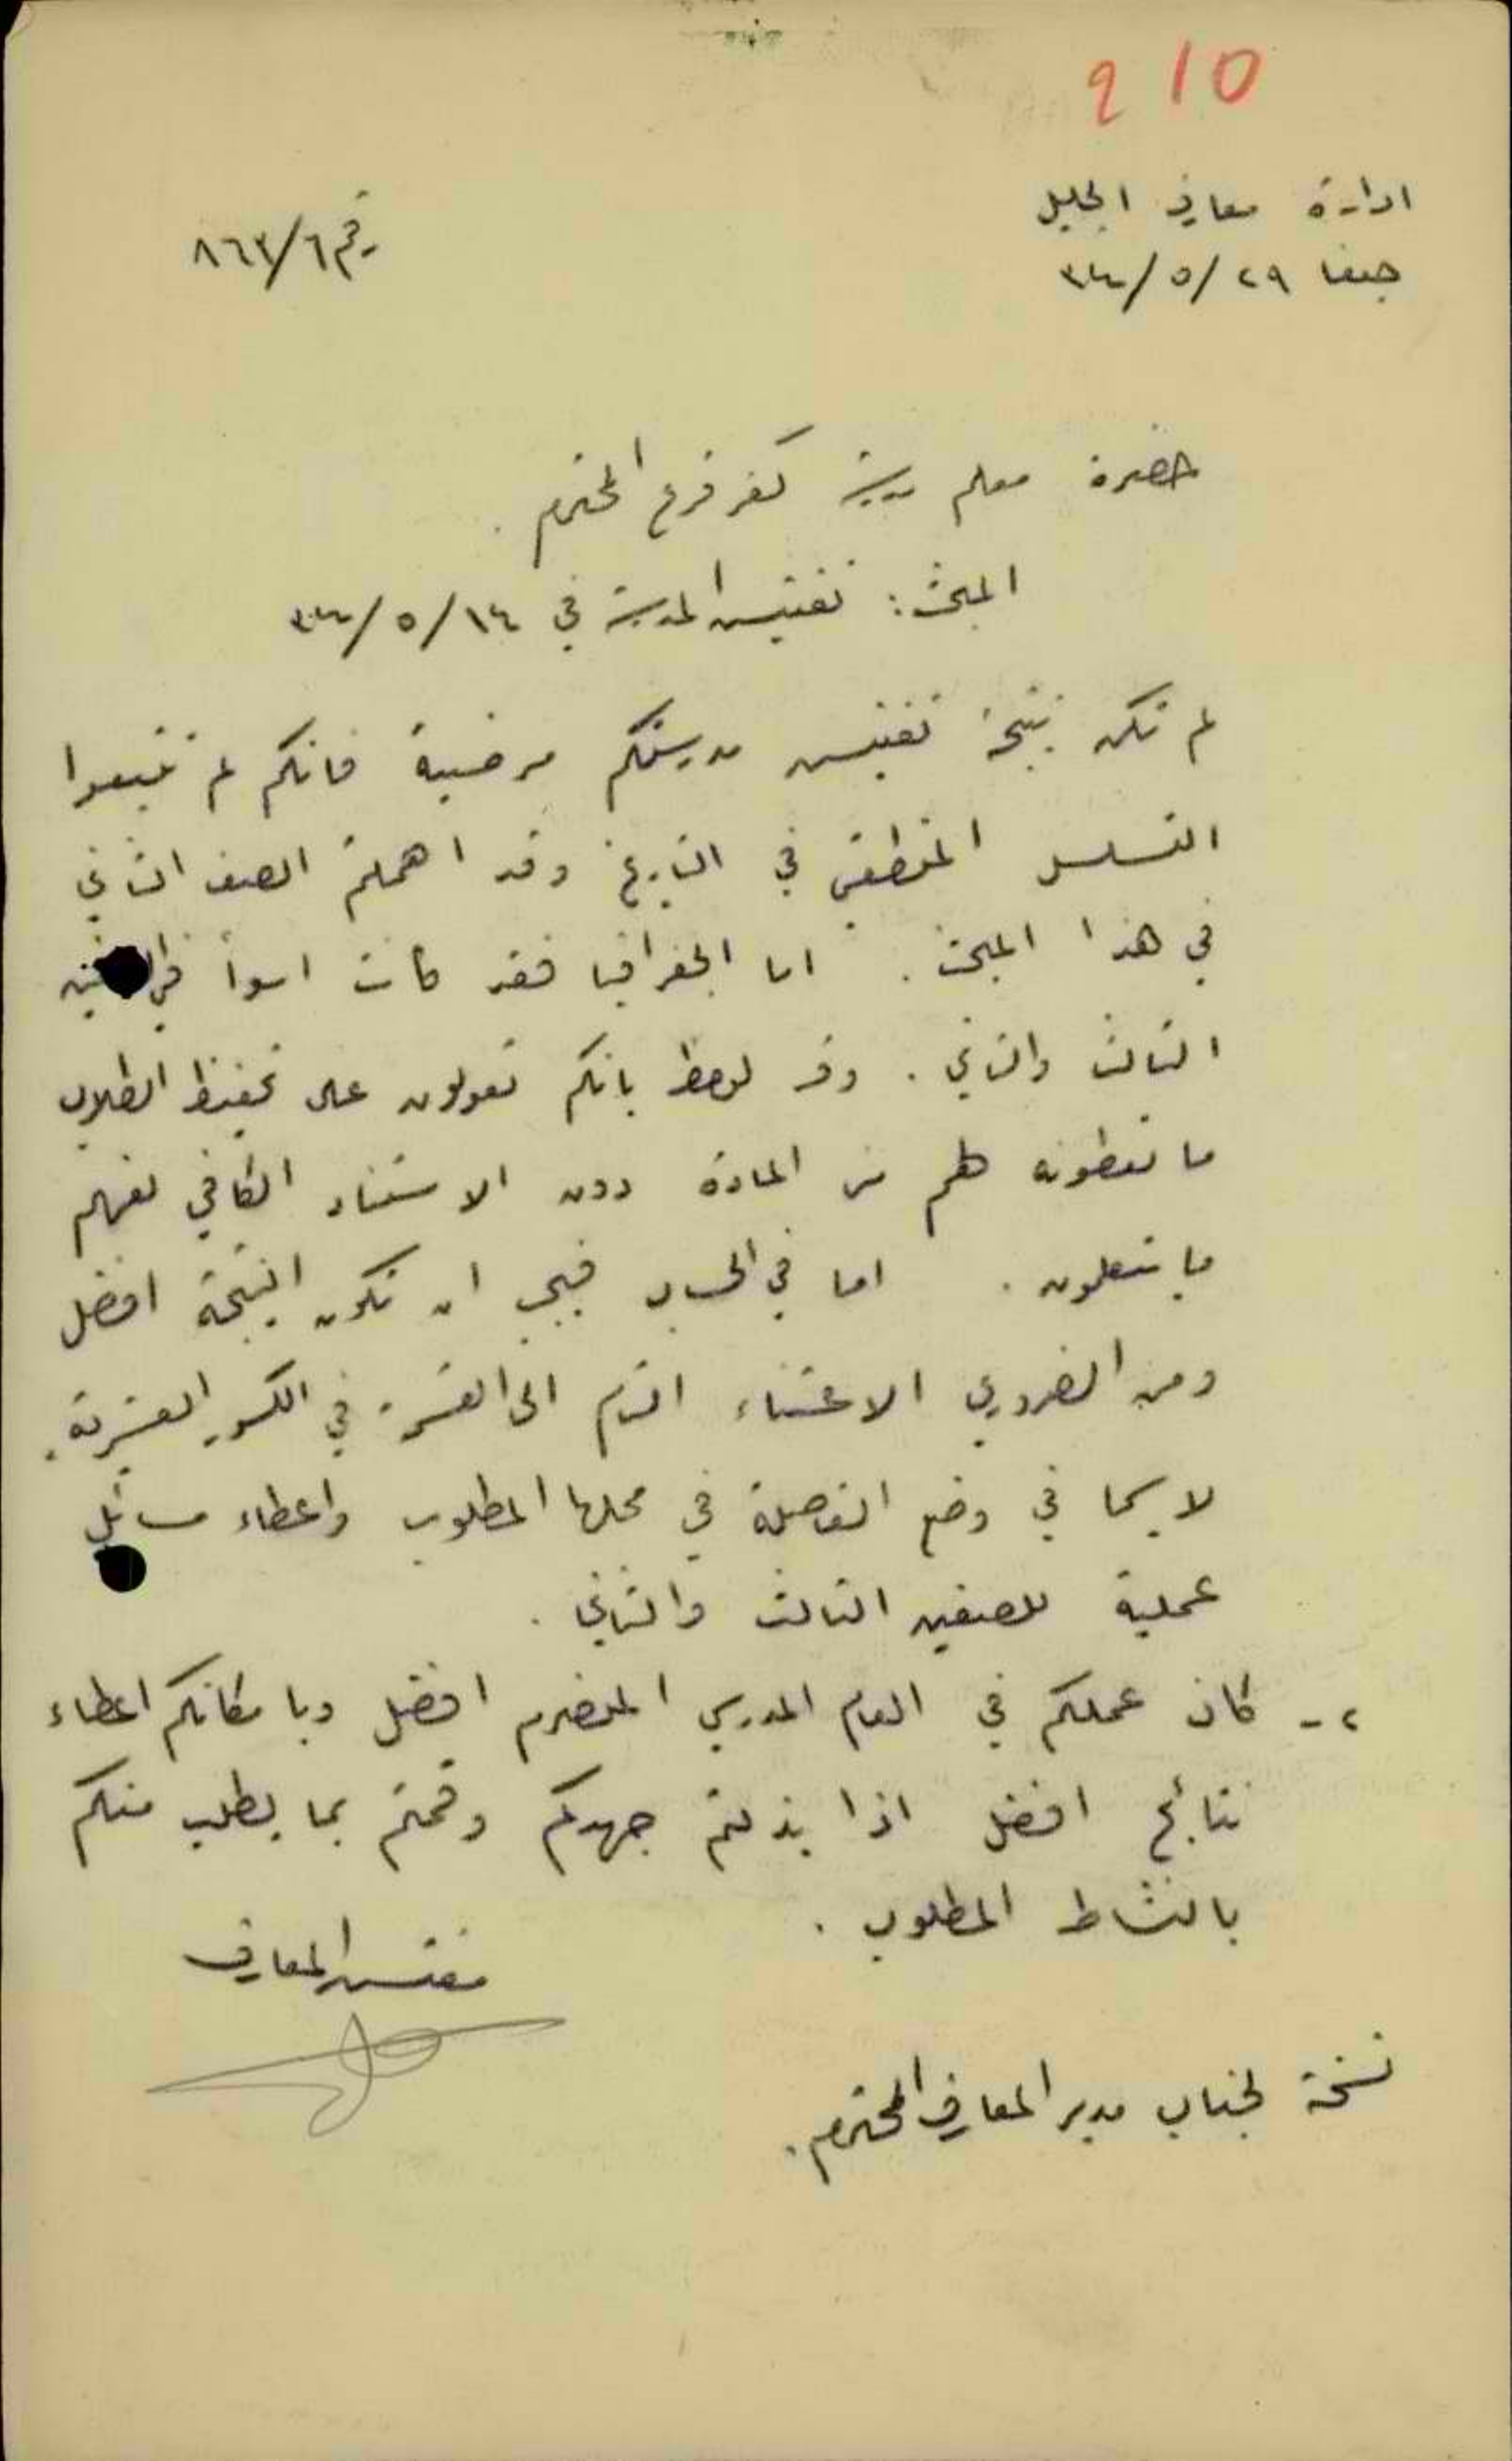 210
ادارة معارف الجليل
حيفا ٢٩/٥/٣٤
رقم ٨٦٣/٦
حضرة معلم مدرسة كفر قرع المحترم .
المبحث : تفتيش المدرسة في ١٤/٥/٣٤
لم تكن نتيجة تفتيش مدرستكم مرضية فانكم لم تتبعوا
التسلسل المنطقي في التاريخ وقد اهملتم الصف الثاني
في هذا المبحث . اما الجغرافيا فقد كانت اسوأ في
الثالث والثاني . وقد لوحظ بانكم تعولون على تحفيظ الطلاب
ما تعطونه لهم من المادة دون الاستناد الكافي لفهم
ما يتعلمون . اما في الحساب فيجب ان تكون النتيجة افضل
ومن الضروري الاعتناء التام الى القسمة في الكسور العشرية .
لا سيما في وضع الفاصلة في محلها المطلوب واعطاء مسائل
عملية للصفين الثالث والثاني .
٢ - كان عملكم في العام المدرسي المنصرم افضل وبامكانكم اعطاء
نتائج افضل اذا بذلتم جهدكم وقمتم بما يطلب منكم
بالنشاط المطلوب .
مفتش المعارف
نسخة لجناب مدير المعارف المحترم .